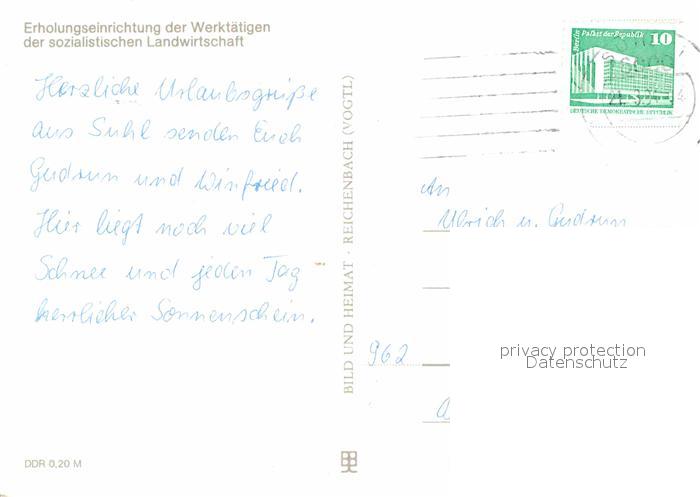 Erholungseinrichtung der Werktätigen
der sozialistischen Landwirtschaft
Herzliche Urlaubsgrüße
aus Suhl senden Euch
Gudrun und Winfried.
Hier liegt noch viel
Schnee und jeden Tag
herrlicher Sonnenschein.
DDR 0,20 M
BILD UND HEIMAT · REICHENBACH (VOGTL)
Berlin Palast der Republik
10
DEUTSCHE DEMOKRATISCHE REPUBLIK
An
Ulrich u. Gudrun
962
privacy protection
Datenschutz